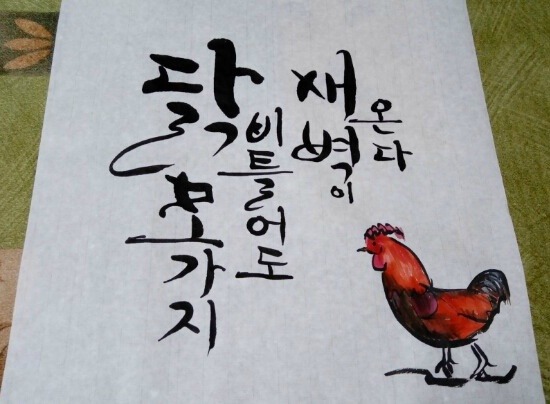 닭
모가지
비틀어도
새벽이
온다